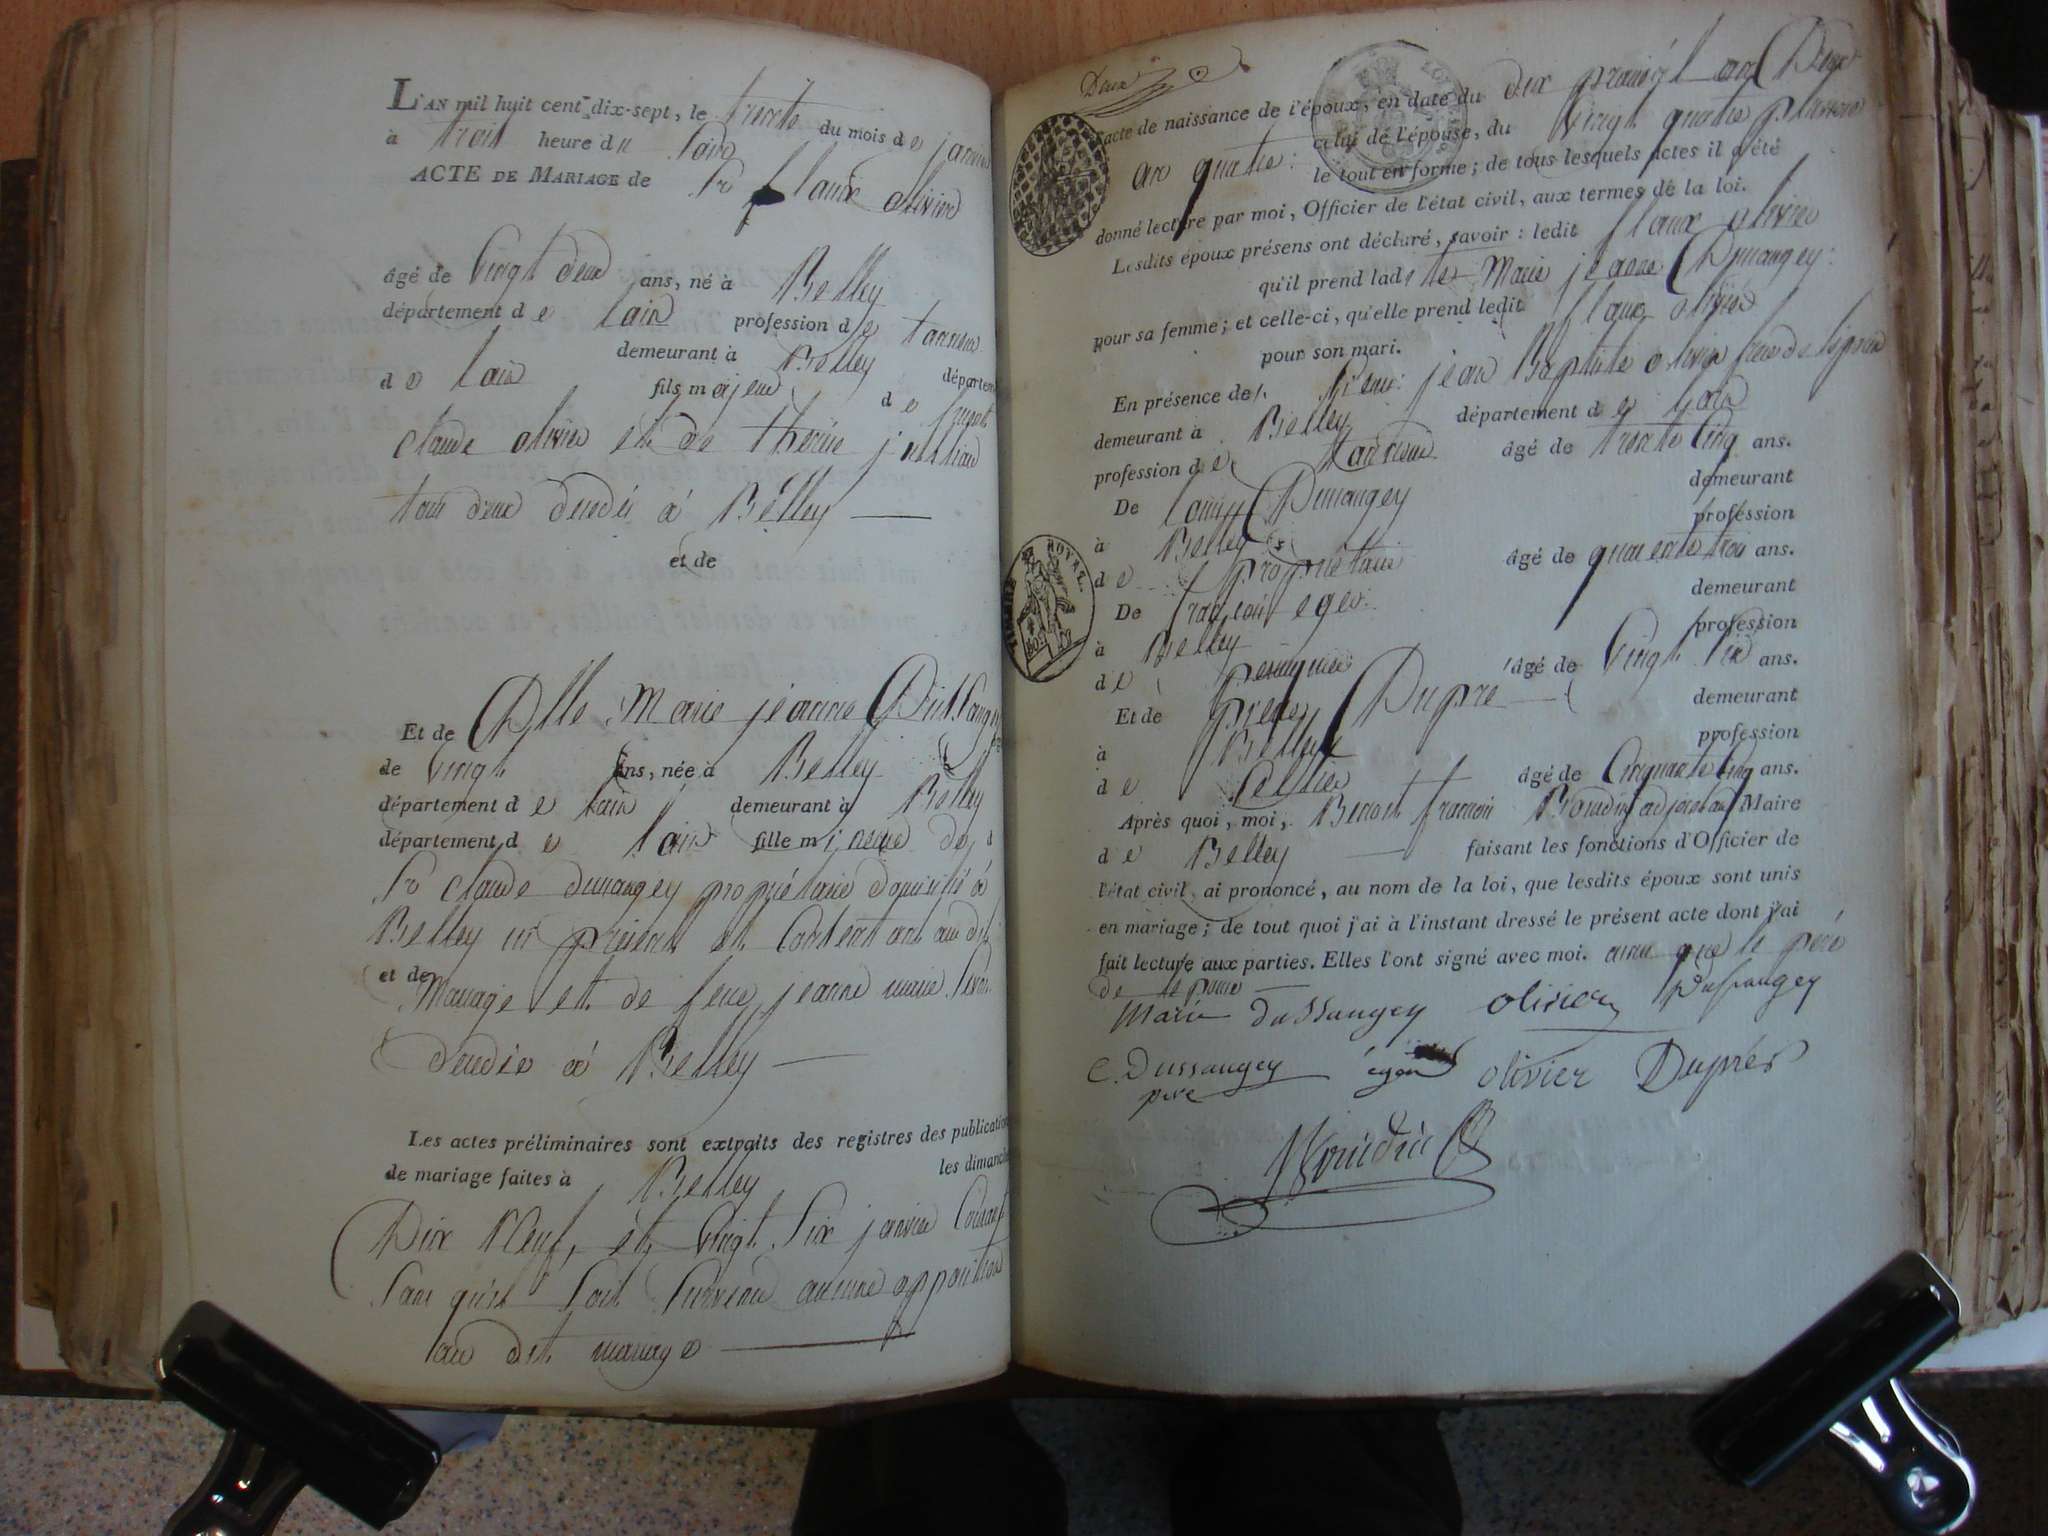 L'AN mil huit cent dix-sept, le trente du mois de janvier
à trois heure du soir
ACTE DE MARIAGE de Sr Claude olivier
âgé de vingt deux ans, né à Belley
département de lain profession de tanneur
demeurant à Belley départem
de lain fils majeur de feux
claude olivier et de thérèse
tous deux décédés à Belley
et de
Et de Dlle Marie jeanne Dussangey
de vingt ans, née à Belley
département de lain demeurant à Belley
département de lain fille mineure de
Sr claude dussangey propriétaire domicilié à
Belley ici présent et Contentant au dit
et de
mariage et de feue jeanne marie
décédée à Belley
Les actes préliminaires sont extraits des registres des publication
de mariage faites à Belley les dimanch
Dix Neuf, et vingt six janvier Courant
sans qu'il soit survenu aucune opposition
au dit mariage
Deux
l'acte de naissance de l'époux, en date du dix prairial an Deux
celui de l'épouse, du vingt quatre
an quatre : le tout en forme ; de tous lesquels actes il a été
donné lecture par moi, Officier de l'état civil, aux termes de la loi.
Lesdits époux présens ont déclaré, savoir : ledit Claude olivier
qu'il prend ladite Marie jeanne Dussangey
pour sa femme ; et celle-ci, qu'elle prend ledit Claude olivier
pour son mari.
En présence de sieur jean Baptiste olivier frère de lépoux
demeurant à Belley département de lain
profession de tanneur âgé de trente cinq ans.
De louis Dussangey demeurant
à Belley profession
de propriétaire âgé de quarente trois ans.
De françois demeurant
à Belley profession
de perruquier âgé de vingt six ans.
Et de Dupré demeurant
à Belley profession
de sellier âgé de Cinquante cinq ans.
Après quoi, moi, Benoit françois Boudin adjoint au Maire
de Belley faisant les fonctions d'Officier de
l'état civil, ai prononcé, au nom de la loi, que lesdits époux sont unis
en mariage ; de tout quoi j'ai à l'instant dressé le présent acte dont j'ai
fait lecture aux parties. Elles l'ont signé avec moi. ainsi que le père
de
Marie dussangey olivier Dussangey
C. Dussangey olivier Duprés
père
Boudin
TIMBRE ROYAL